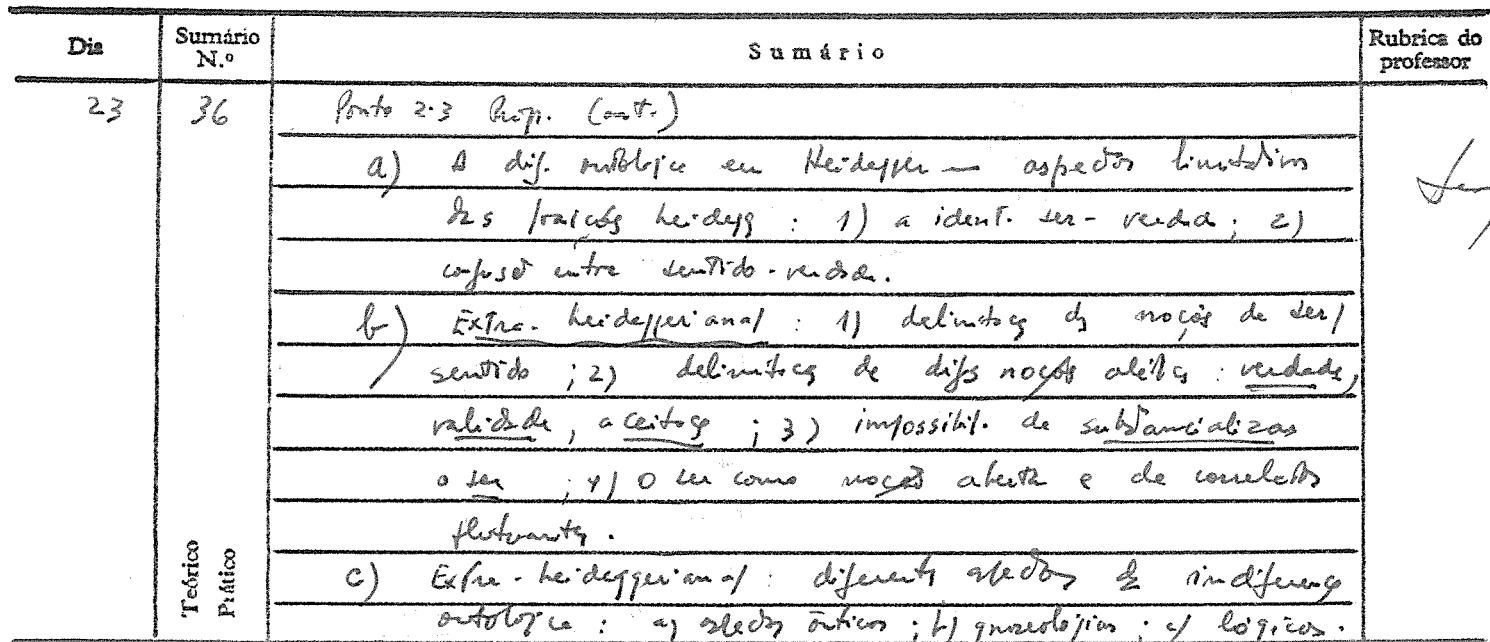 Dia Sumário N.º Sumário Rubrica do professor
23 36 Ponto 2.3 Prop. (cont.)
a) A dif. ontológica em Heidegger — aspectos limitativos
das heidegg : 1) a ident. ser-verdade; 2)
confusão entre sentido-verdade.
b) Extra-heideggeriana/ : 1) delimitação das noções de ser/
sentido ; 2) delimitação de difs noções : verdade,
validade, aceitação ; 3) impossibil. de substancializar
o ser ; 4) O ser como noção aberta e de correlatos
flutuantes.
c) Extra-heideggeriana/ : diferentes aspectos da indiferença
ontológica : a) aspectos ônticos ; b) gnoseológicos ; c) lógicos.
Teórico
Prático